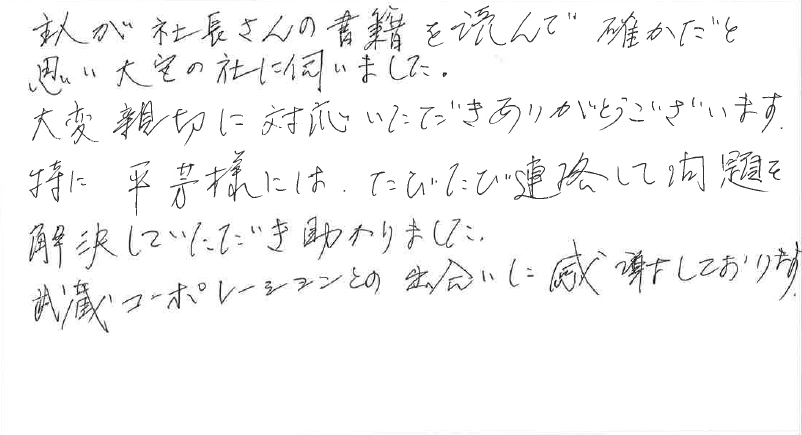 主人が社長さんの書籍を読んで確かだと
思い大宮の社に伺いました。
大変親切に対応いただきありがとうございます。
特に平芳様には、たびたび連絡して問題を
解決していただき助かりました。
武蔵コーポレーションとの出合いに感謝しております。